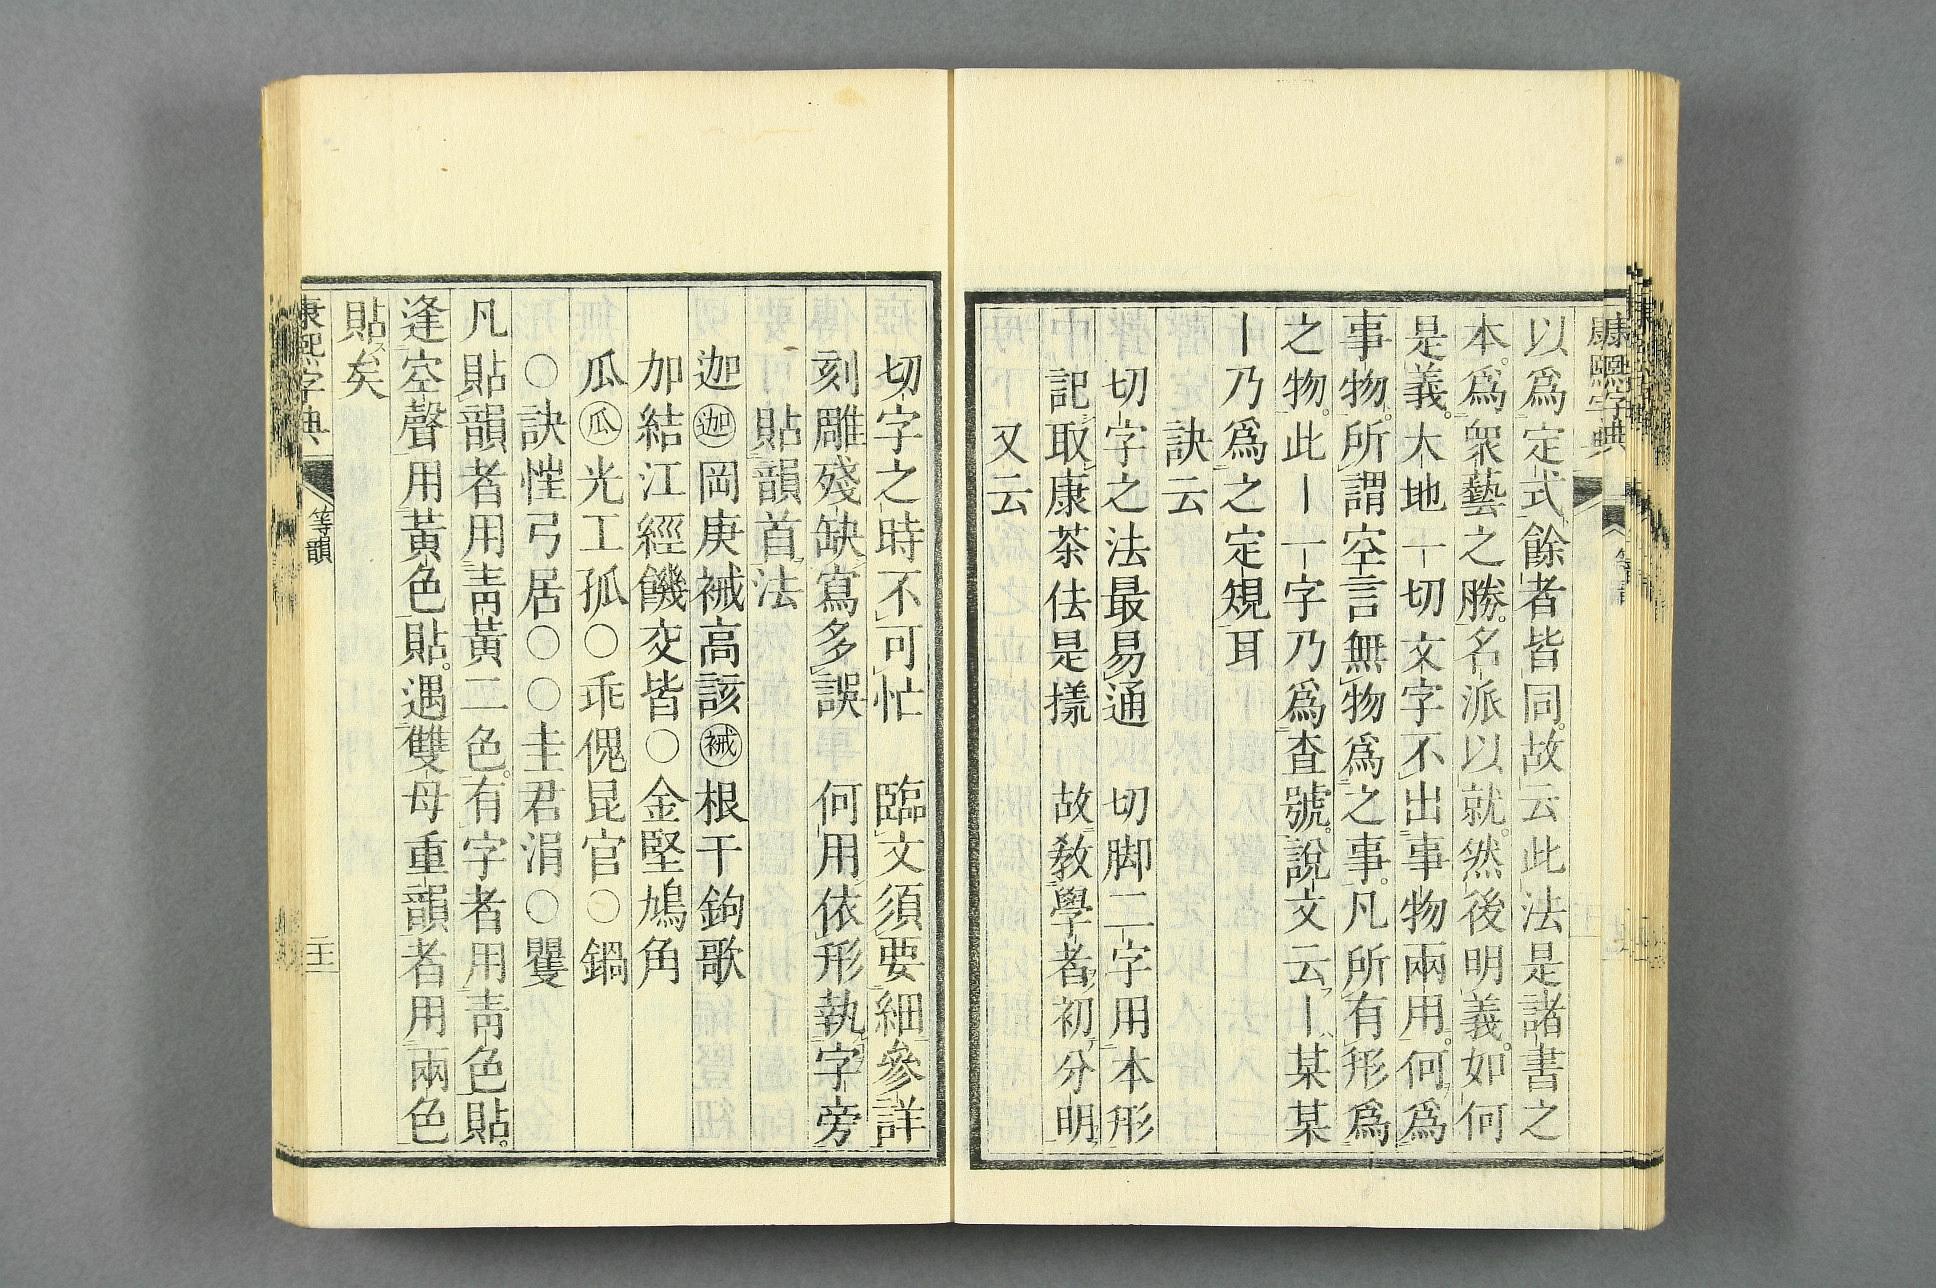 康熙字典
以爲定式餘者皆同。故云此法是諸書之
本。爲衆藝之勝。名派以就。然後明義。如何
是義。大地一切文字不出事物兩用。何爲
事物。所謂空言無物爲之事。凡所有形爲
之物。此丨一字乃爲查號。說文云丨某某
丨乃爲之定規耳
訣云
切字之法最易通 切脚二字用本形
記取康茶佉是㨾 故教學者初分明
又云
切字之時不可忙 臨文須要細參詳
刻雕殘缺寫多誤 何用依形執字旁
貼韻首法
迦㊀岡庚祴高該祴根干鉤歌
加結江經饑交皆〇金堅鳩角
瓜瓜光工孤〇乖傀昆官〇鍋
〇訣恇弓居〇〇圭君涓〇矍
凡貼韻者用青黃二色。有字者用青色貼。
逢空聲用黃色貼。遇雙母重韻者用兩色
貼矣
康熙字典 等韻 二十一